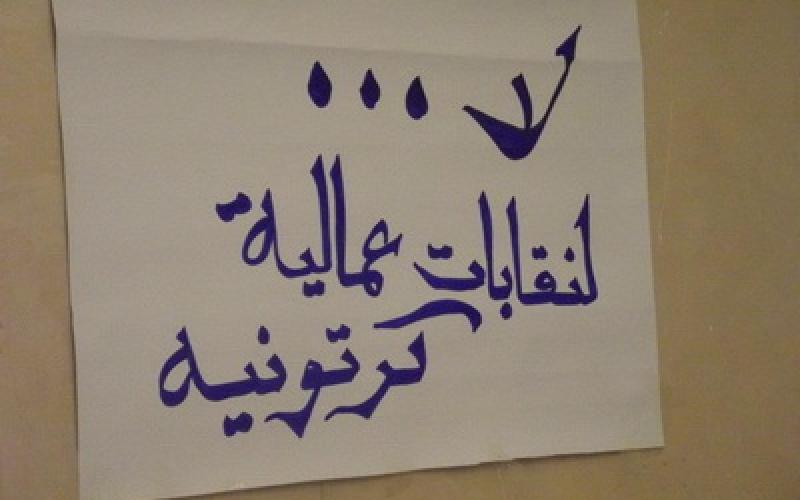 لا ...
لنقابات عمالية
كرتونيه